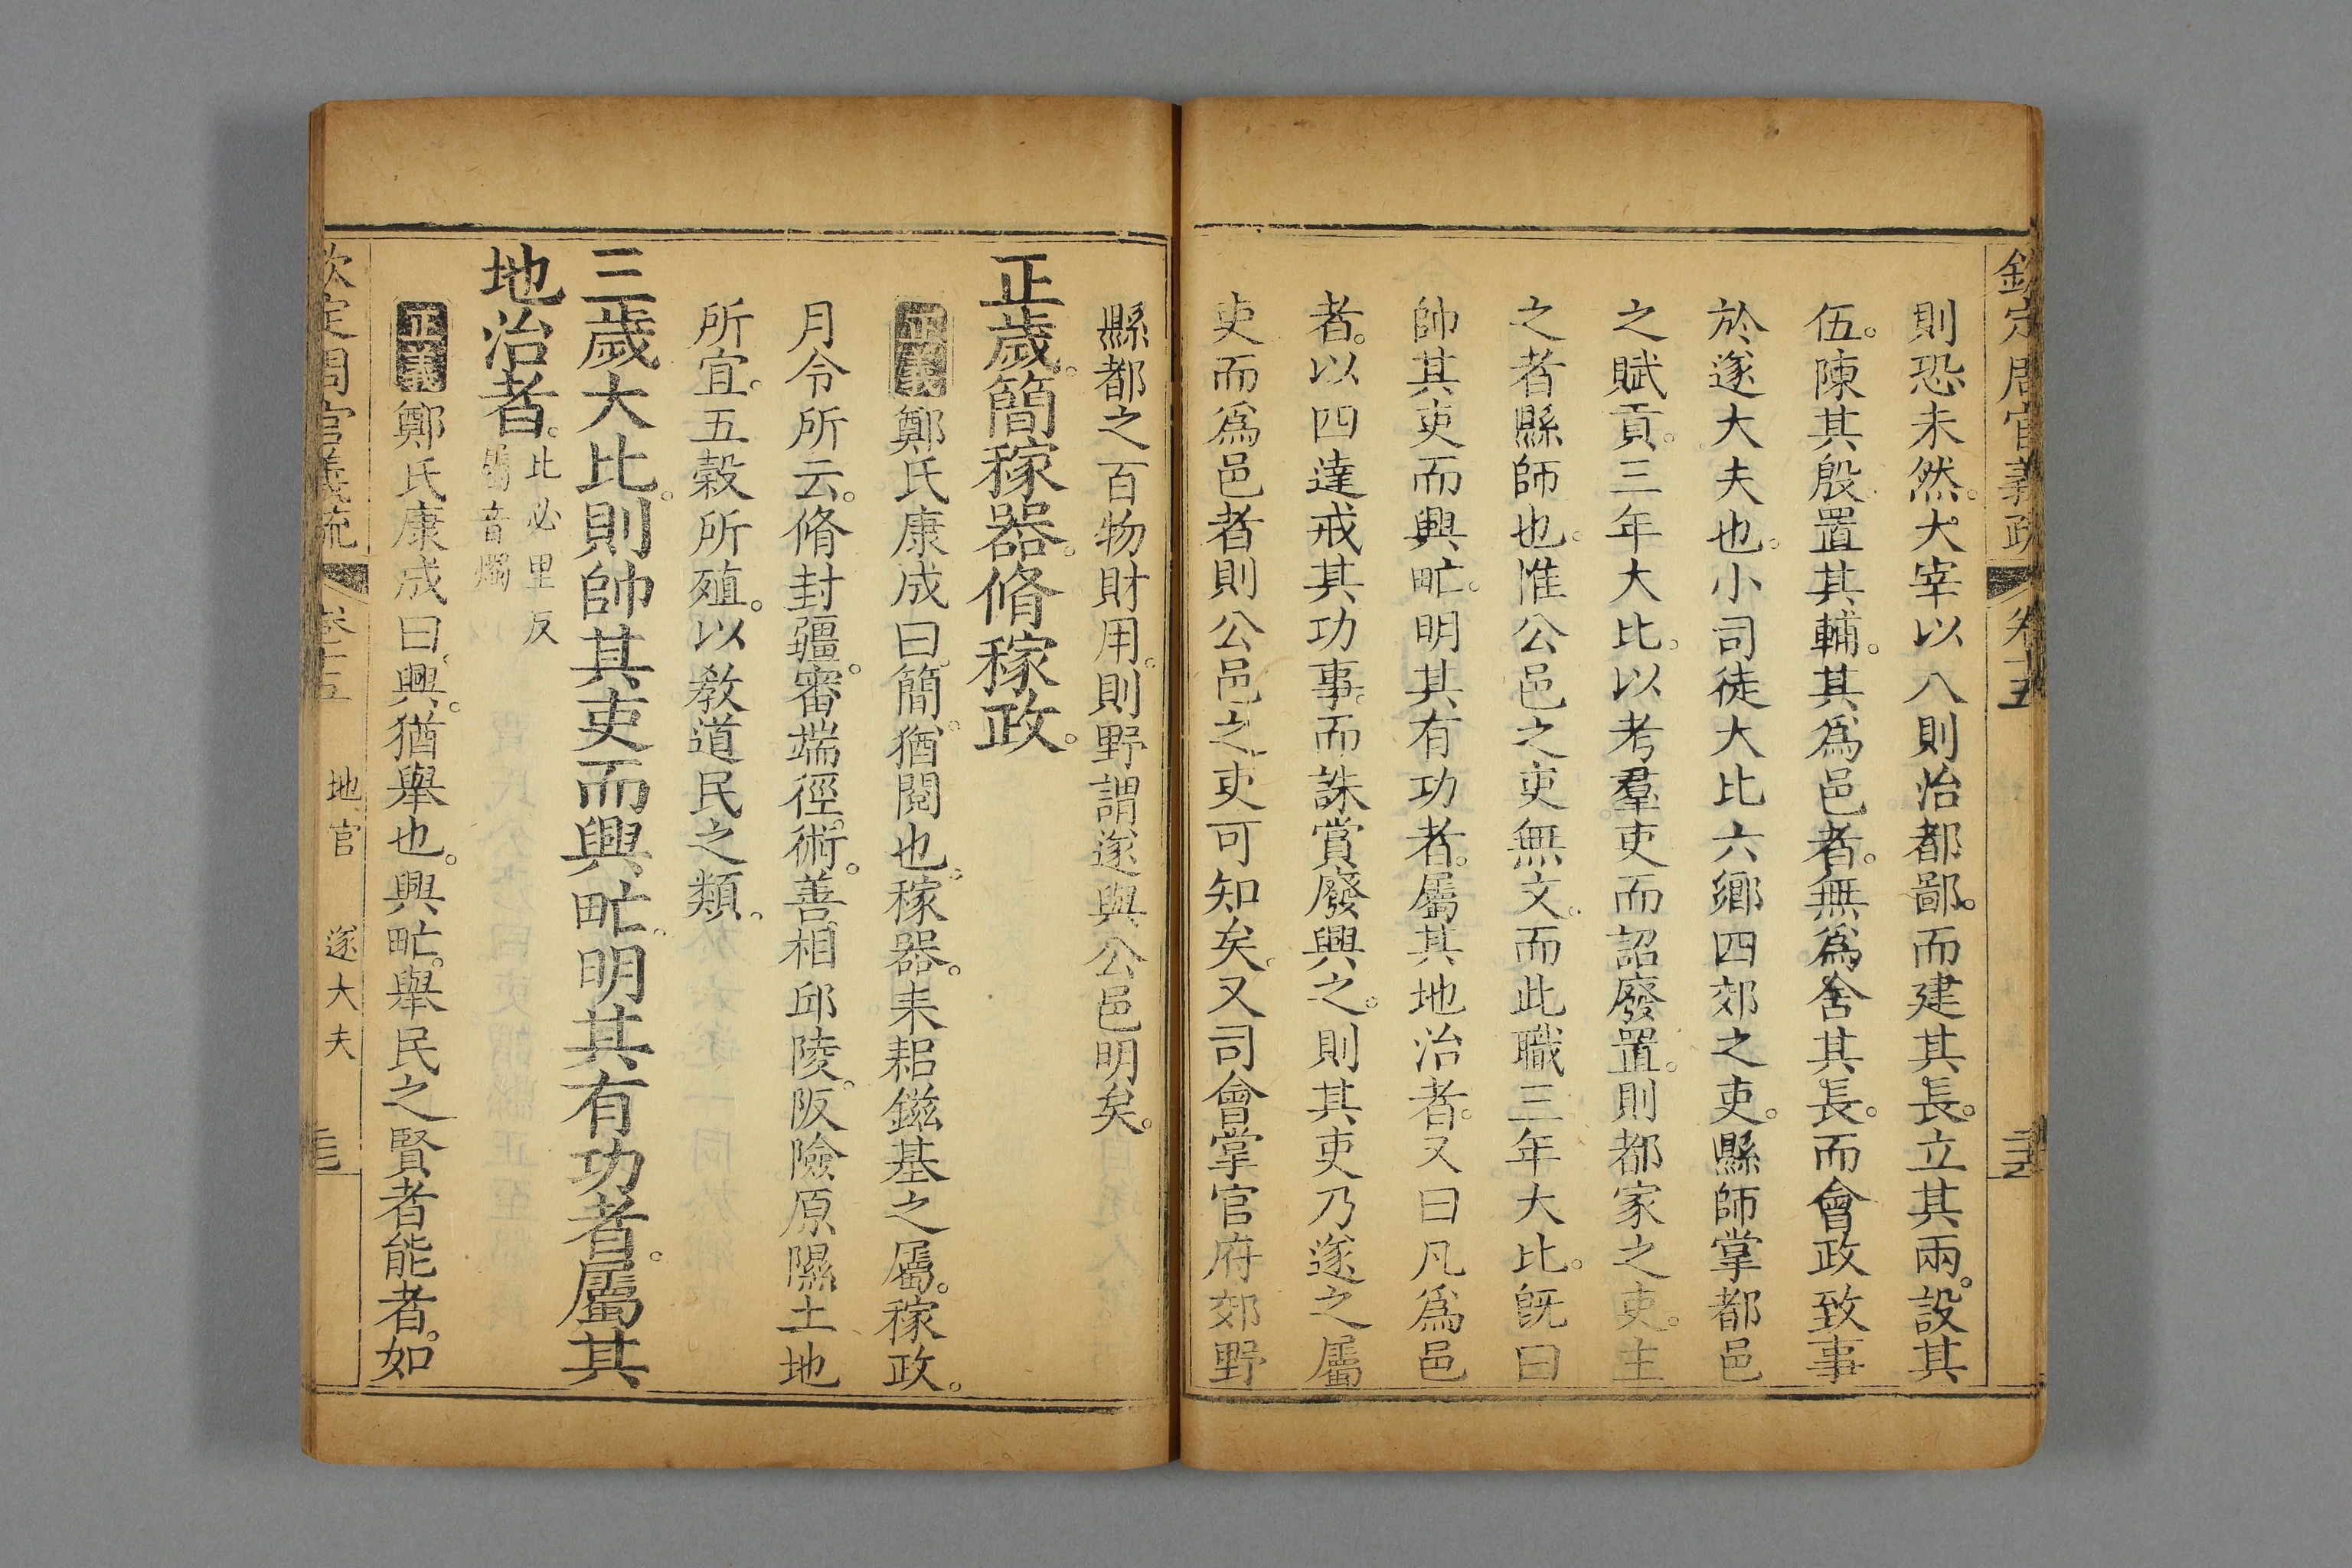 欽定周官義疏 卷十五
則恐未然。大宰以八則治都鄙。而建其長。立其兩。設其
伍。陳其殷置其輔。其為邑者。無為舍其長。而會政致事
於遂大夫也。小司徒大比六鄉四郊之吏。縣師掌都邑
之賦貢。三年大比。以考羣吏而詔廢置。則都家之吏。主
之者縣師也。惟公邑之吏無文。而此職三年大比。旣曰
帥其吏而興甿。明其有功者。屬其地治者。又曰凡為邑
者。以四達戒其功事。而誅賞廢興之。則其吏乃遂之屬
吏而為邑者則公邑之吏可知矣。又司會掌官府郊野
縣都之百物財用。則野謂遂與公邑明矣。
正歲。簡稼器。脩稼政。
正義 鄭氏康成曰。簡。猶閱也。稼器。耒耜鎡基之屬。稼政。
月令所云。脩封疆。審端徑。術。善相邱陵。阪險原隰土地
所宜。五穀所殖。以敎道民之類。
三歲大比。則帥其吏而興甿。明其有功者。屬其
地治者。比必里反
屬音燭
正義 鄭氏康成曰。興。猶舉也。興甿。舉民之賢者能者。如
欽定周官義疏 卷十五 地官 遂大夫